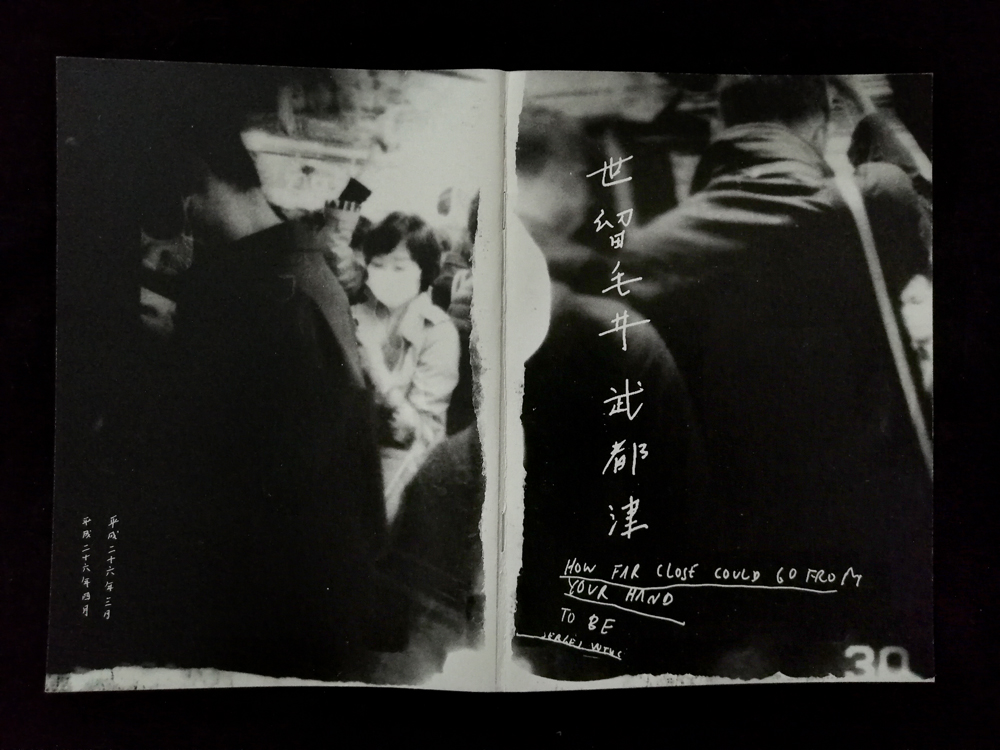 世留毛井武都津
HOW FAR CLOSE COULD GO FROM
YOUR HAND
TO BE
平成二十六年三月
平成二十六年四月
30